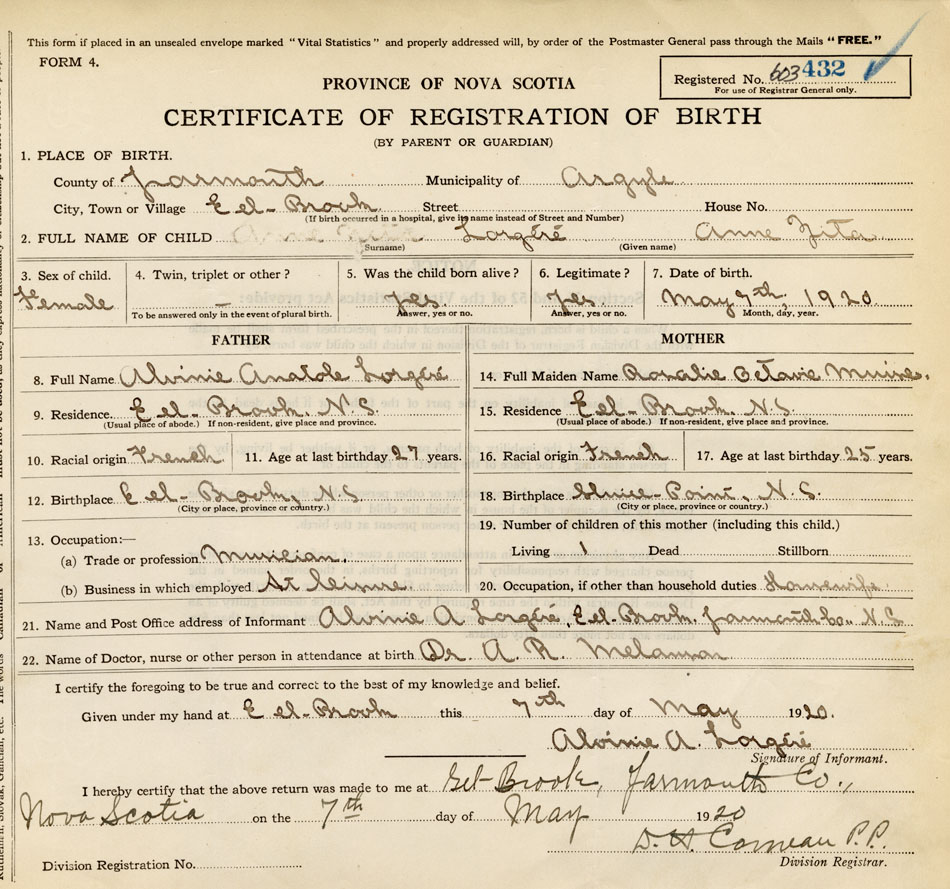 This form if placed in an unsealed envelope marked "Vital Statistics" and properly addressed will, by order of the Postmaster General pass through the Mails "FREE."
FORM 4.
Registered No. 603 432
For use of Registrar General only.
PROVINCE OF NOVA SCOTIA
CERTIFICATE OF REGISTRATION OF BIRTH
(BY PARENT OR GUARDIAN)
1. PLACE OF BIRTH.
County of Yarmouth Municipality of Argyle
City, Town or Village Eel-Brook Street House No.
(If birth occurred in a hospital, give its name instead of Street and Number)
2. FULL NAME OF CHILD Lorgéré Anne Zita
(Surname) (Given name)
3. Sex of child. 4. Twin, triplet or other? 5. Was the child born alive? 6. Legitimate? 7. Date of birth.
Female — Yes. Yes. May 7th, 1920
To be answered only in the event of plural birth. Answer, yes or no. Answer, yes or no. Month, day, year.
FATHER MOTHER
8. Full Name Alvinie Anatole Lorgéré 14. Full Maiden Name Rosalie Octavie Muise.
9. Residence. Eel-Brook. N.S. 15. Residence Eel-Brook. N.S.
(Usual place of abode.) If non-resident, give place and province. (Usual place of abode.) If non-resident, give place and province.
10. Racial origin French 11. Age at last birthday 27 years. 16. Racial origin French 17. Age at last birthday 25 years.
12. Birthplace Eel-Brook, N.S. 18. Birthplace Sluice-Point, N.S.
(City or place, province or country.) (City or place, province or country.)
19. Number of children of this mother (including this child.)
13. Occupation:—
(a) Trade or profession Musician. Living 1 Dead Stillborn
(b) Business in which employed At leisure. 20. Occupation, if other than household duties Housewife
21. Name and Post Office address of Informant Alvinie A Lorgéré, Eel-Brook, Yarmouth Co. N.S.
22. Name of Doctor, nurse or other person in attendance at birth Dr. A. R. Melanson
I certify the foregoing to be true and correct to the best of my knowledge and belief.
Given under my hand at Eel-Brook this 7th day of May 1920.
Alvinie A. Lorgéré
Signature of Informant.
I hereby certify that the above return was made to me at Eel-Brook, Yarmouth Co.,
Nova Scotia on the 7th day of May 1920
D. H. Comeau P.P.
Division Registration No. Division Registrar.